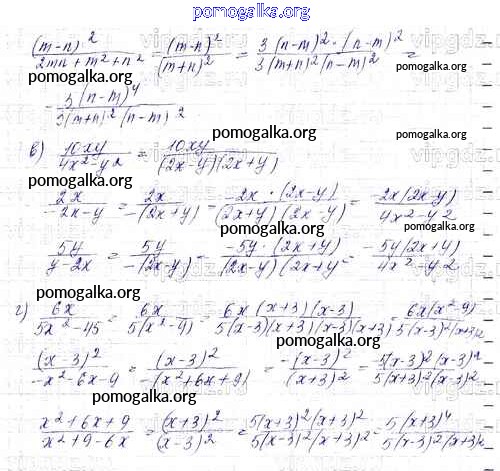 pomogalka.org
(m-n)²/(2mn+m²+n²) = (m-n)²/(m+n)² = 3(n-m)²·(n-m)²/(3(m+n)²(n-m)²) =
pomogalka.org pomogalka.org pomogalka.org
= 3(n-m)⁴/(3(m+n)²(n-m)²)
pomogalka.org
в) 10xy/(4x²-y²) = 10xy/((2x-y)(2x+y))
pomogalka.org pomogalka.org
2x/(-2x-y) = 2x/(-(2x+y)) = -2x·(2x-y)/((2x+y)(2x-y)) = -2x(2x-y)/(4x²-y²)
pomogalka.org pomogalka.org
5y/(y-2x) = 5y/(-(2x-y)) = -5y·(2x+y)/((2x-y)(2x+y) = -5y(2x+y)/(4x²-y²)
pomogalka.org
г) 6x/(5x²-45) = 6x/(5(x²-9)) = 6x(x+3)(x-3)/(5(x-3)(x+3)(x-3)(x+3)) = 6x(x²-9)/(5(x-3)²(x+3)²)
pomogalka.org
(x-3)²/(-x²-6x-9) = (x-3)²/(-(x²+6x+9)) = -(x-3)²/(x+3)² = -5(x-3)²(x-3)²/(5(x+3)²(x-3)²)
pomogalka.org pomogalka.org
(x²+6x+9)/(x²+9-6x) = (x+3)²/(x-3)² = 5(x+3)²(x+3)²/(5(x-3)²(x+3)²) = 5(x+3)⁴/(5(x-3)²(x+3)²)